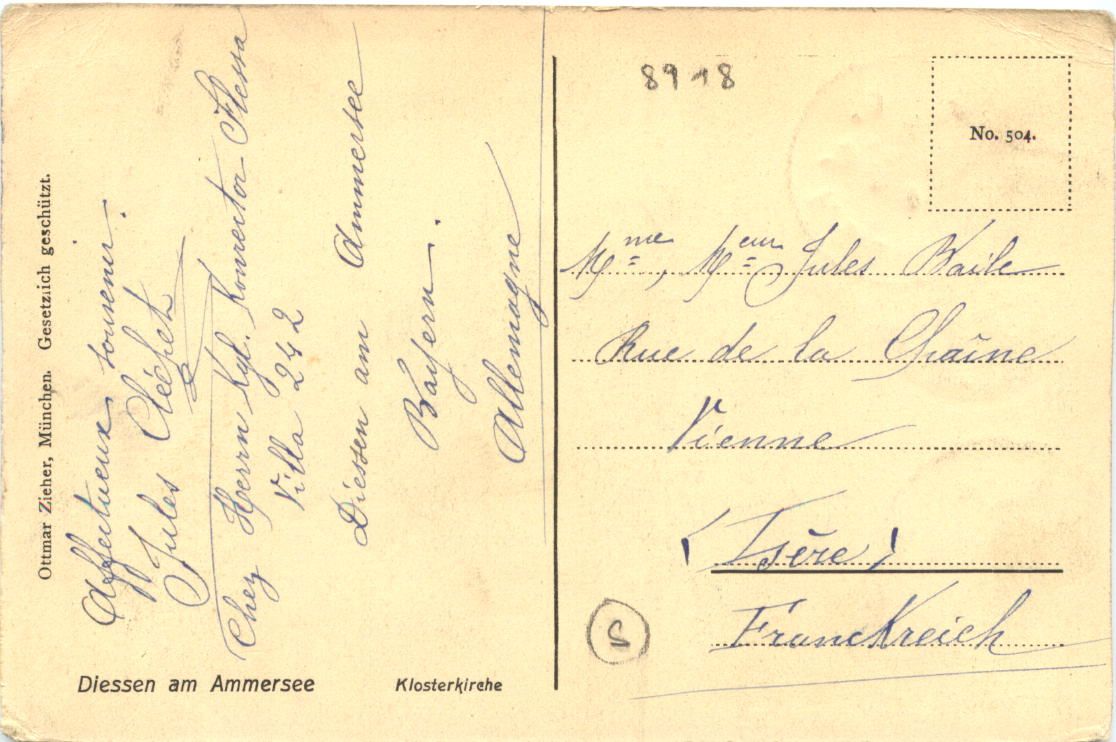 Ottmar Zieher, München. Gesetzlich geschützt.
Affectueux souvenir.
Jules Cléchet
Chez Herrn Kgl. Konrector Flessa
Villa 242
Diessen am Ammersee
Bayern.
Allemagne
Diessen am Ammersee
Klosterkirche
8918
No. 504.
Mme, Meur Jules Baile
Rue de la Chaîne
Vienne
(Isère)
Franckreich
S